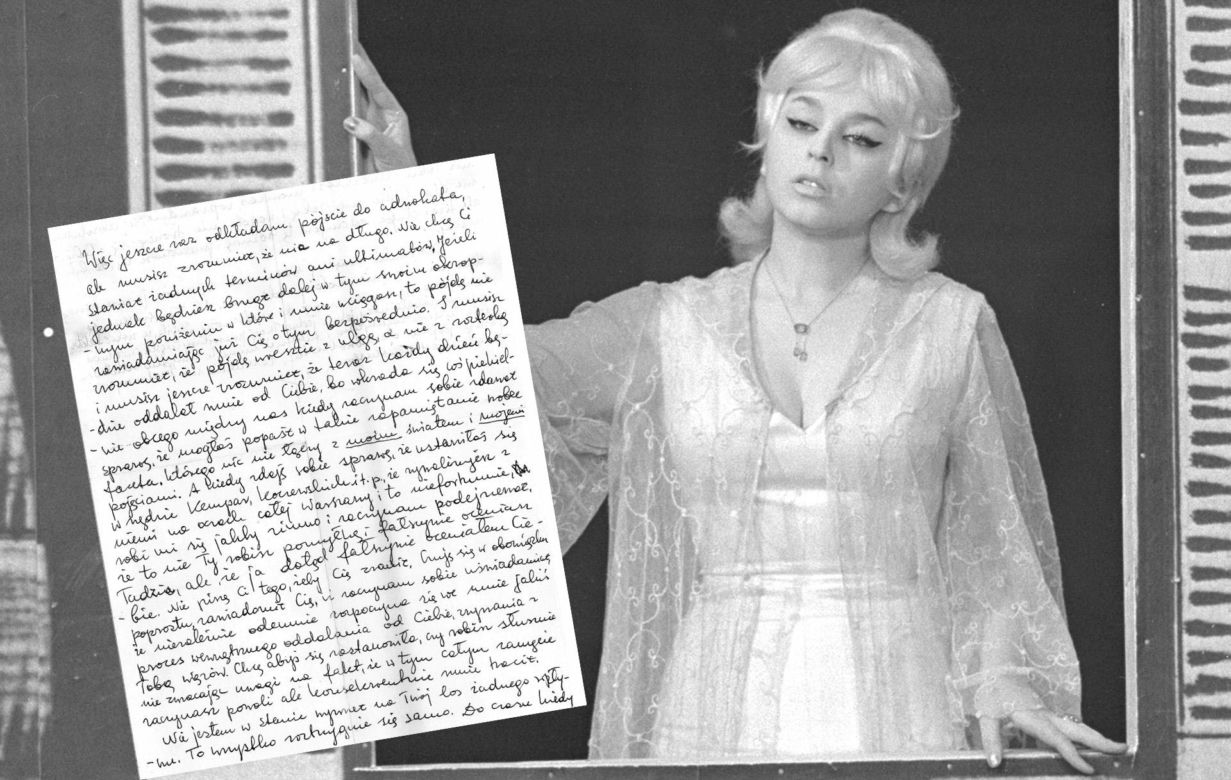 Więc jeszcze raz odkładam pójście do adwokata,
ale musisz zrozumieć, że nie na długo. Nie chcę Ci
stawiać żadnych terminów ani ultimatów, jeżeli
jednak będziesz brnąć dalej w tym swoim okrop-
-nym poniżeniu w które i mnie wciągasz, to pójdę nie
zawiadamiając już Cię o tym bezpośrednio. I musisz
zrozumieć, że pójdę wreszcie z ulgą, a nie z rozterką
i musisz jeszcze zrozumieć, że teraz każdy dzień bę-
-dzie oddalał mnie od Ciebie, bo wkrada się coś piekiel-
-nie obcego między nas kiedy zaczynam sobie zdawać
sprawę, że mogłaś popaść w takie zapamiętanie wobec
faceta, którego nic nie łączy z moim światem i mojemi
pojęciami. A kiedy zdaję sobie sprawę, że ustawiłaś się
w rzędzie Kempar, i t. p., że rywalizujesz z
niemi na oczach całej Warszawy; to
robi mi się jakby zimno i zaczynam podejrzewać,
że to nie Ty robisz pomyłkę i fałszywie oceniasz
Tadzia, ale, że ja dotąd fałszywie oceniałem Cie-
-bie. Nie piszę Ci tego, żeby Cię zranić, czuję się w obowiązku
poprostu, zawiadomić Cię, iż zaczynam sobie uświadamiać
że niezależnie odemnie rozpoczyna się we mnie jakiś
proces wewnętrznego oddalania od Ciebie, zrywania z
Tobą więzów. Chcę abyś się zastanowiła, czy robisz słusznie
nie zwracając uwagi na fakt, że w tym całym zamęcie
zaczynasz powoli ale konsekwentnie mnie tracić.
Nie jestem w stanie wywrzeć na Twój los żadnego wpły-
-wu. To wszystko roztrzygnie się samo. Do czasu kiedy